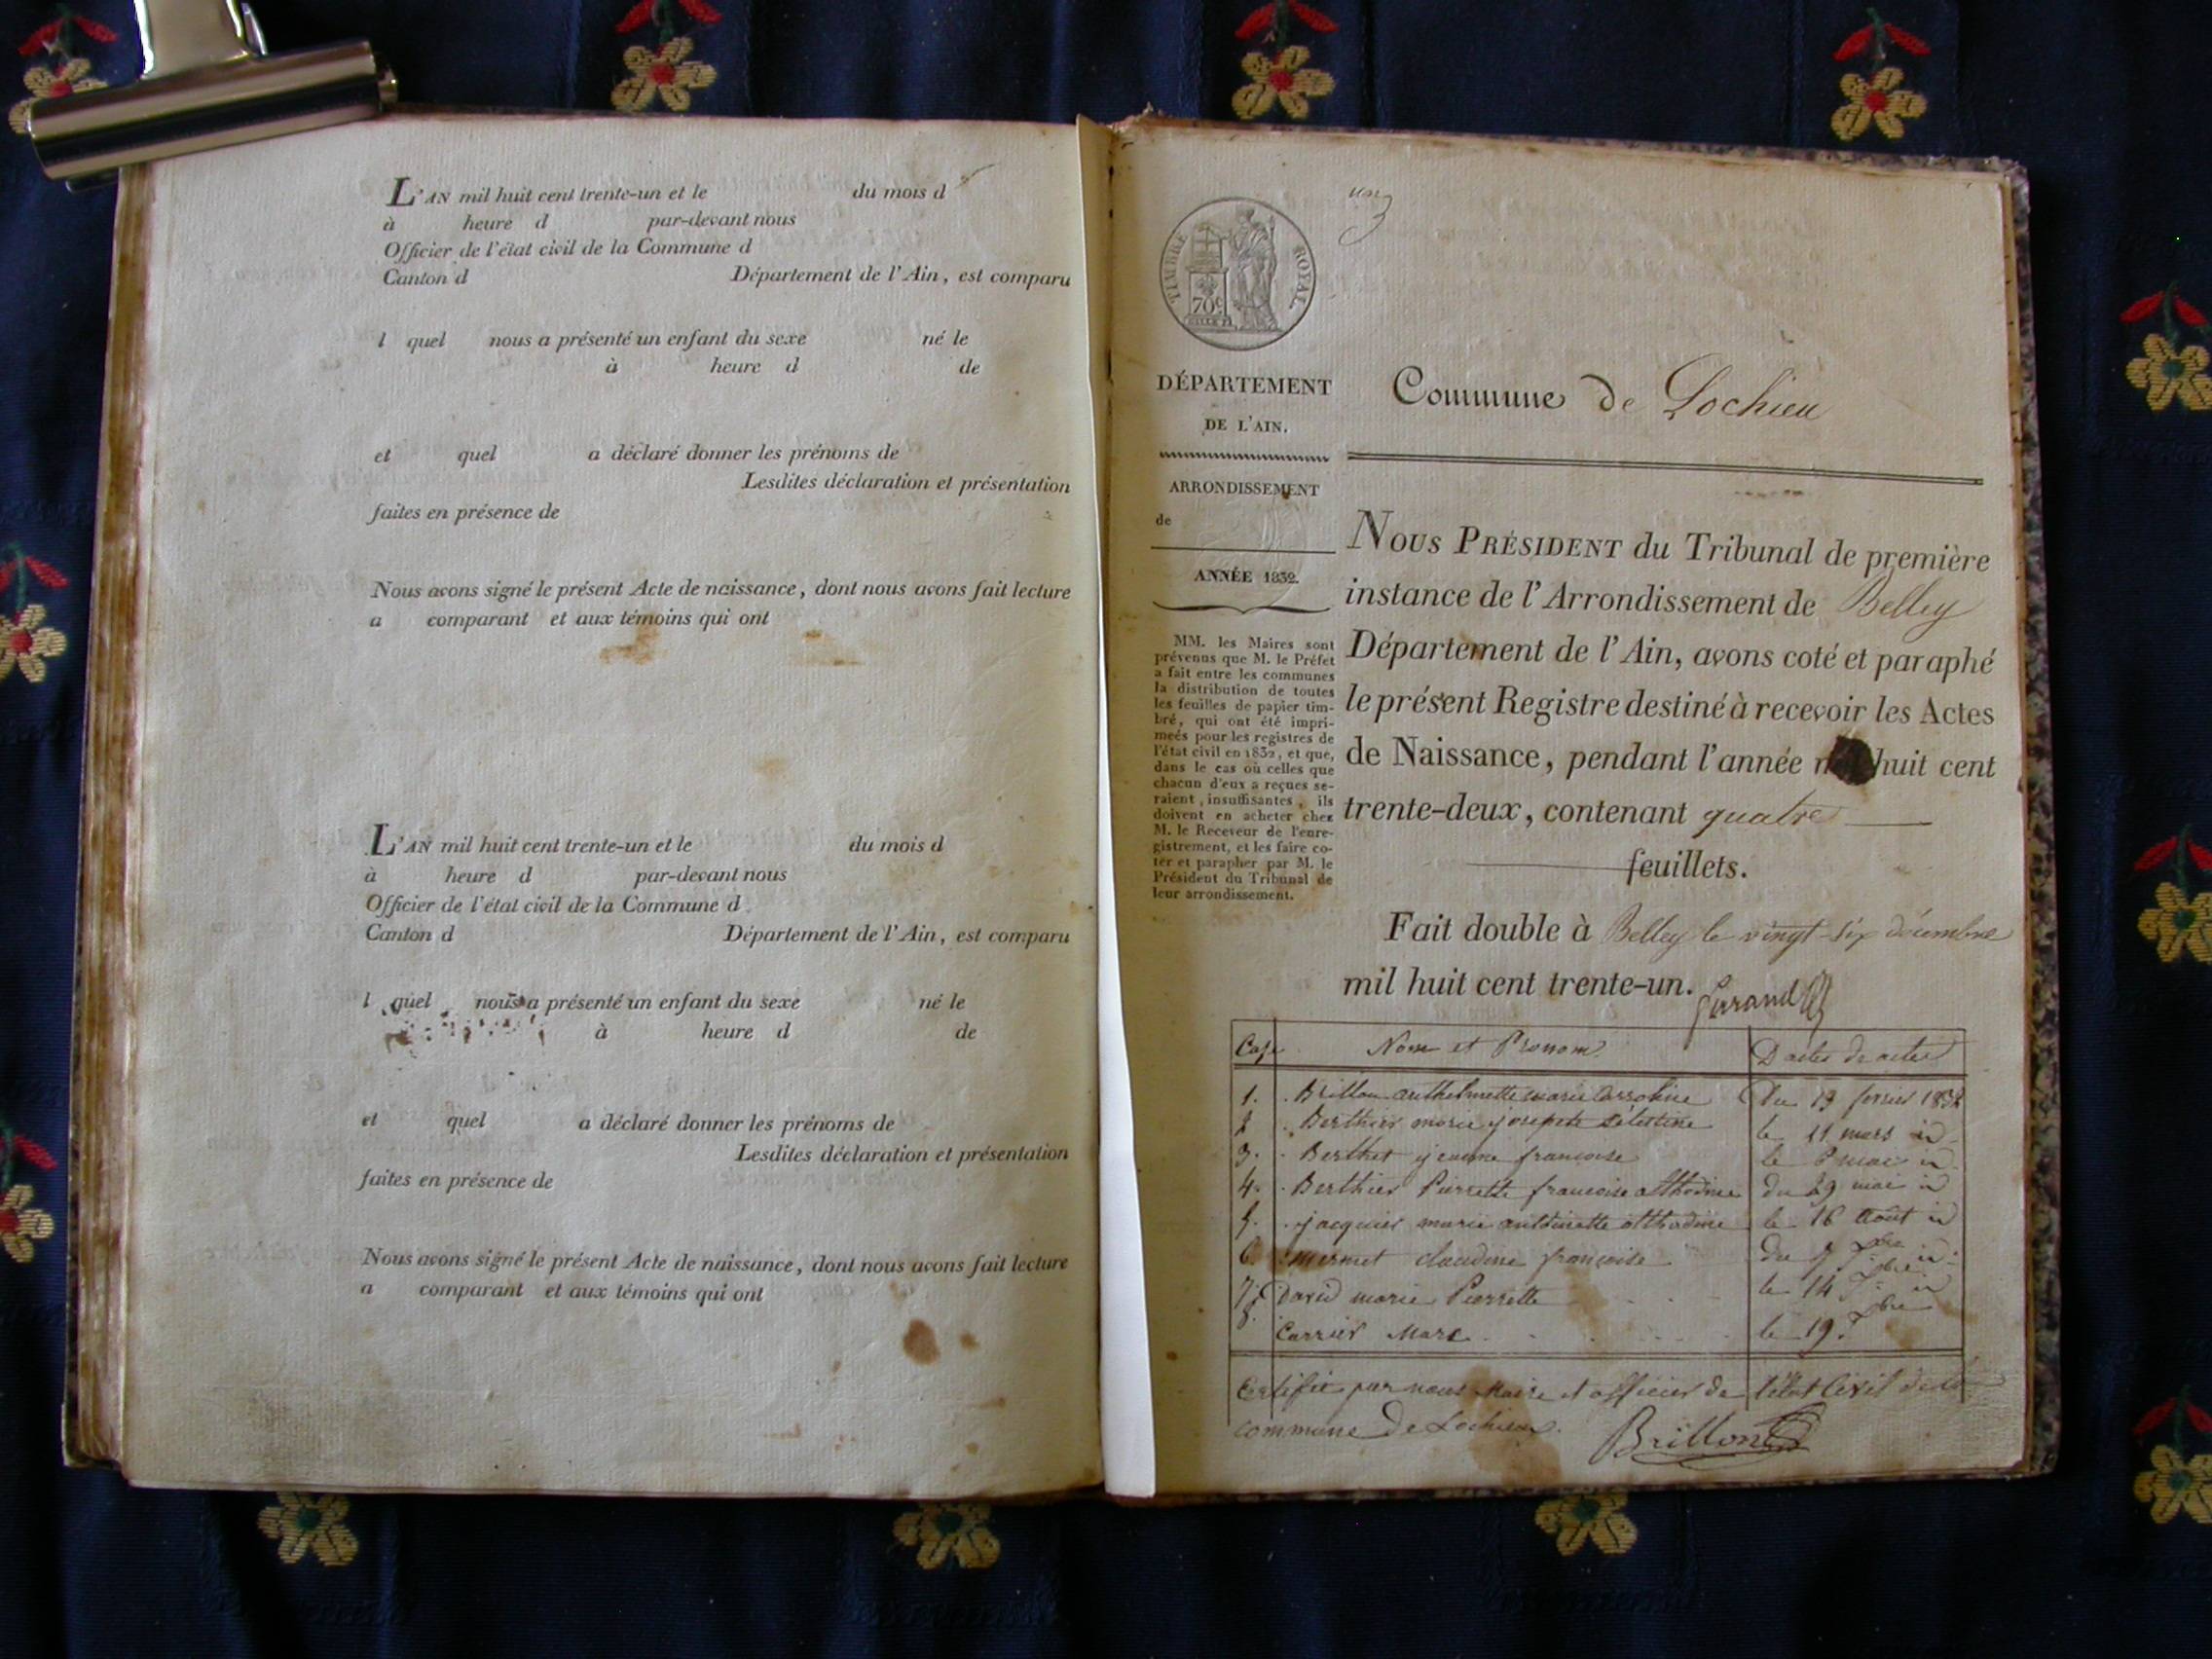 L'AN mil huit cent trente-un et le du mois d
à heure d par-devant nous
Officier de l'état civil de la Commune d
Canton d Département de l'Ain, est comparu
l quel nous a présenté un enfant du sexe né le
à heure d de
et quel a déclaré donner les prénoms de
Lesdites déclaration et présentation
faites en présence de
Nous avons signé le présent Acte de naissance, dont nous avons fait lecture
a comparant et aux témoins qui ont
L'AN mil huit cent trente-un et le du mois d
à heure d par-devant nous
Officier de l'état civil de la Commune d
Canton d Département de l'Ain, est comparu
l quel nous a présenté un enfant du sexe né le
à heure d de
et quel a déclaré donner les prénoms de
Lesdites déclaration et présentation
faites en présence de
Nous avons signé le présent Acte de naissance, dont nous avons fait lecture
a comparant et aux témoins qui ont
un
TIMBRE ROYAL
70c
DÉPARTEMENT
DE L'AIN.
ARRONDISSEMENT
de
ANNÉE 1832.
MM. les Maires sont
prévenus que M. le Préfet
a fait entre les communes
la distribution de toutes
les feuilles de papier tim-
bré, qui ont été impri-
meés pour les registres de
l'état civil en 1832, et que,
dans le cas où celles que
chacun d'eux a reçues se-
raient, insuffisantes, ils
doivent en acheter chez
M. le Receveur de l'enre-
gistrement, et les faire co-
ter et parapher par M. le
Président du Tribunal de
leur arrondissement.
Commune de Lochieu
NOUS PRÉSIDENT du Tribunal de première
instance de l'Arrondissement de Belley
Département de l'Ain, avons coté et paraphé
le présent Registre destiné à recevoir les Actes
de Naissance, pendant l'année huit cent
trente-deux, contenant quatre
feuillets.
Fait double à Belley le vingt-six décembre
mil huit cent trente-un.
Case Nom et Pronom Dates de actes
1. Brillon anthelmette marie Du 13 fevrier 1832
2 Berthier marie josephte célestine le 11 mars id
3. Berthet jeanne francoise le mai id
4. Berthier Pierrette francoise du 29 mai id
5. jacquier marie antoinette le 16 Août id
6. mermet claudine françoise du 7bre id
7. David marie Pierrette le 14 7bre id
8. Carrier Marc le 19 7bre
Certifié par nous Maire et officier de l'état Civil de la
commune De Lochieu. Brillon